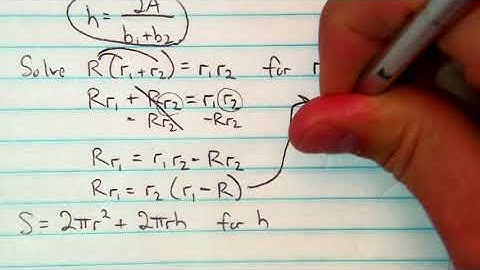 h = 2A / b₁+b₂
Solve R(r₁+r₂) = r₁r₂ for r
Rr₁ + Rr₂ = r₁r₂
- Rr₂ -Rr₂
Rr₁ = r₁r₂ - Rr₂
Rr₁ = r₂(r₁-R)
S = 2πr² + 2πrh for h